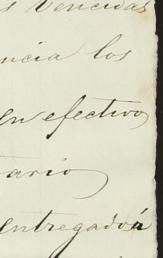 s vencidas
ncia los
en efectivo
tario
entregado á